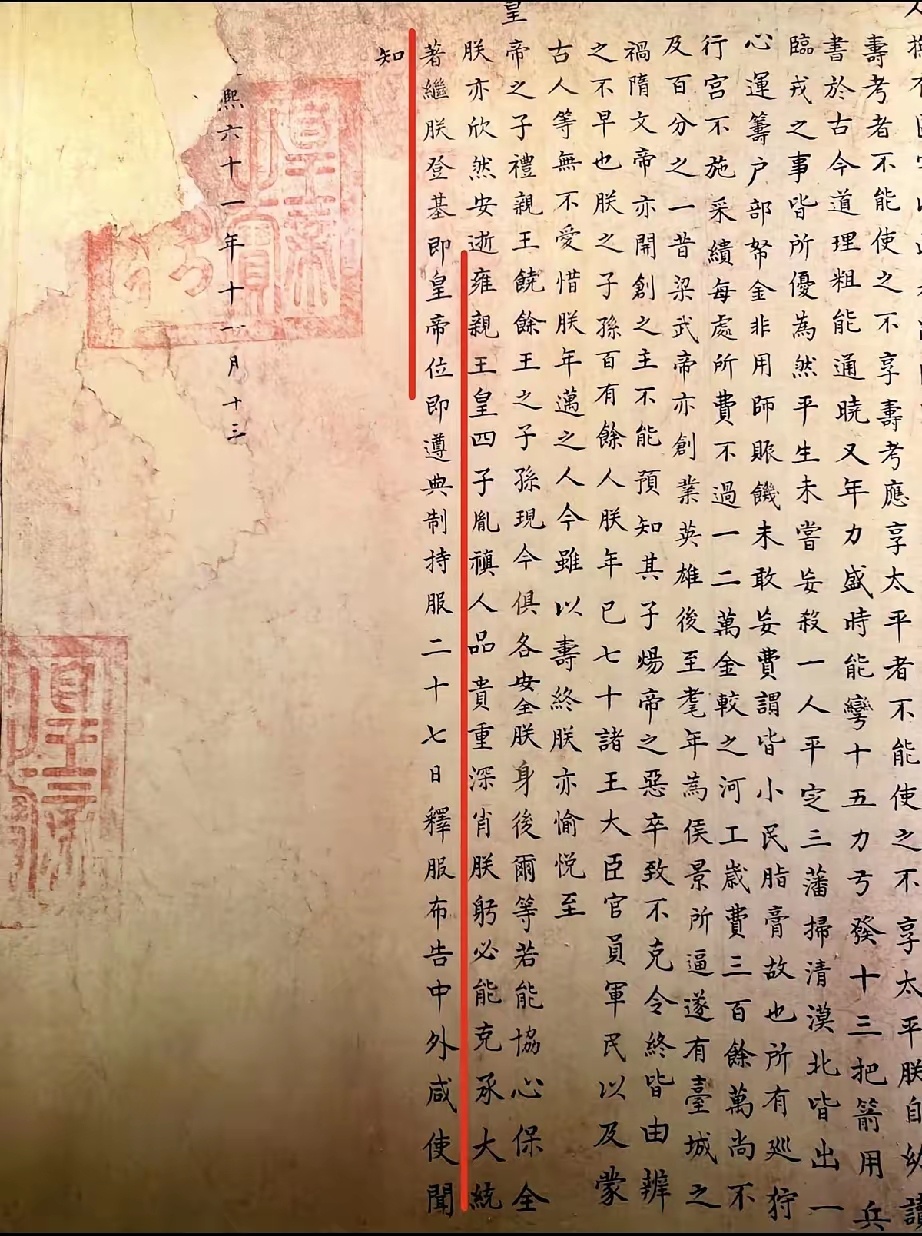 壽考者不能使之不享壽考應享太平者不能使之不享太平朕自幼讀
書於古今道理粗能通曉又年力盛時能彎十五力弓發十三把箭用兵
臨戎之事皆所優為然平生未嘗妄殺一人平定三藩掃清漠北皆出一
心運籌户部帑金非用師賑饑未敢妄費謂皆小民脂膏故也所有巡狩
行宮不施采繢每處所費不過一二萬金較之河工歲費三百餘萬尚不
及百分之一昔梁武帝亦創業英雄後至耄年為侯景所逼遂有臺城之
禍隋文帝亦開創之主不能預知其子煬帝之惡卒致不克令終皆由辨
之不早也朕之子孫百有餘人朕年已七十諸王大臣官員軍民以及蒙
古人等無不愛惜朕年邁之人今雖以壽終朕亦愉悅至
皇帝之子禮親王饒餘王之子孫現今俱各安全朕身後爾等若能協心保全
朕亦欣然安逝雍親王皇四子胤禛人品貴重深肖朕躬必能克承大統
著繼朕登基即皇帝位即遵典制持服二十七日釋服布告中外咸使聞
知
熙六十一年十一月十三
皇帝之寶